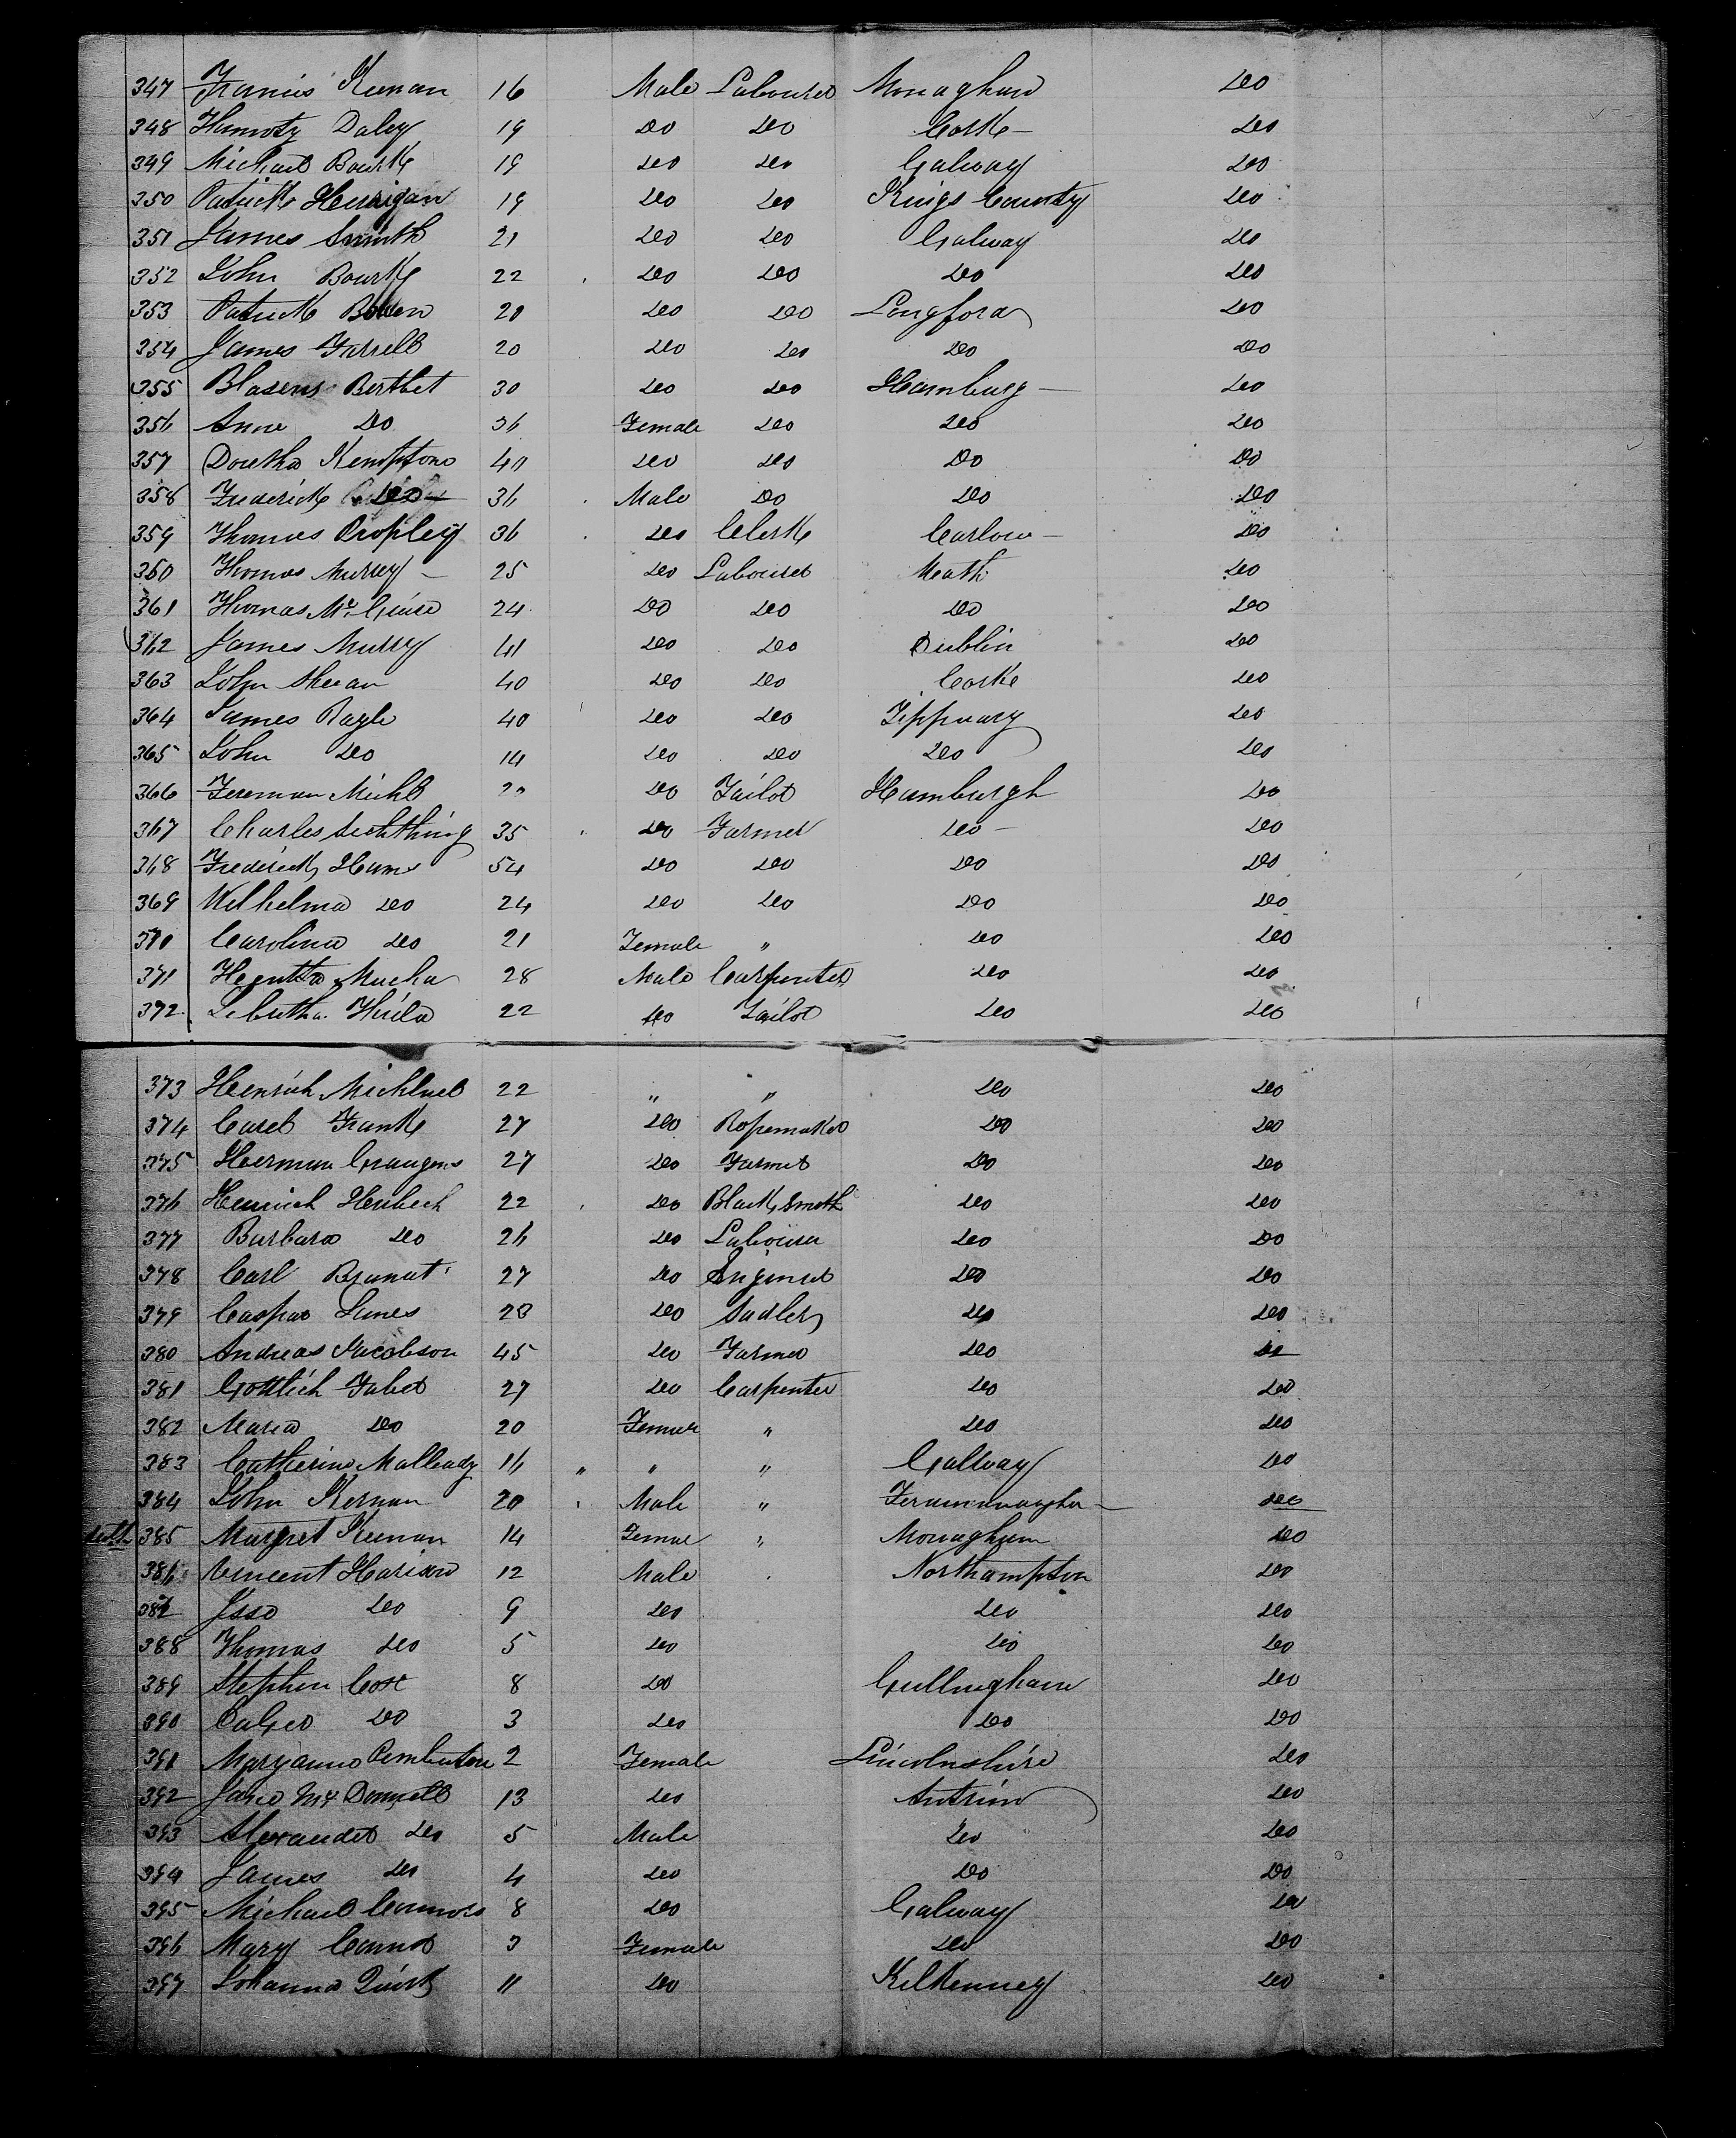 347 Francis Keenan 16 Male Labourer Monaghan Do
348 Thimoty Daley 19 Do Do Cork Do
349 Michael Bourke 19 Do Do Galway Do
350 Patrick Herrigan 19 Do Do Kings County Do
351 James Smith 21 Do Do Galway Do
352 John Bourke 22 Do Do Do Do
353 Patrick 20 Do Do Longford Do
354 James Farrell 20 Do Do Do Do
355 Blasens Berthet 30 Do Do Hamburg Do
356 Anne Do 36 Female Do Do Do
357 Dortha Kemptone 40 Do Do Do Do
358 Frederick Do 36 Male Do Do Do
359 Thomas Propley 36 Do Clerk Carlow Do
360 Thomas Murrey 25 Do Labourer Meath Do
361 Thomas Mc Guire 24 Do Do Do Do
362 James Murry 41 Do Do Dublin Do
363 John Shean 40 Do Do Cork Do
364 James Ragle 40 Do Do Tippuary Do
365 John Do 14 Do Do Do Do
366 Michl Do Tailor Hamburgh Do
367 Charles 35 Do Farmer Do Do
368 Frederick Hams 54 Do Do Do Do
369 Wilhelma Do 24 Do Do Do Do
370 Carolina Do 21 Female " Do Do
371 Mucha 28 Male Carpenter Do Do
372 22 Do Tailor Do Do
373 Henrich 22 " " Do Do
374 Carel Frank 27 Do Ropemaker Do Do
375 Herman 27 Do Farmer Do Do
376 Heinrich Herbech 22 Do Black Smith Do Do
377 Barbara Do 26 Do Labourer Do Do
378 Carl 27 Do Enginer Do Do
379 Caspar 28 Do Sadler Do Do
380 Andreas Jacobson 45 Do Farmer Do Do
381 Gottlieh Faber 27 Do Carpenter Do Do
382 Maria Do 20 Female " Do Do
383 Catherine Malleady 16 " " " Gallway Do
384 John Kernan 20 Male " Do
385 Margret Keenan 14 Female " Monaghan Do
386 Vincent Harison 12 Male Northampton Do
387 Do 9 Do Do Do
388 Thomas Do 5 Do Do Do
389 Stephen Cox 8 Do Gullingham Do
390 Do 3 Do Do Do
391 Maryanne Pemberton 2 Female Lincolnshire Do
392 Jane Mc Donnell 13 Do Antrim Do
393 Alexander Do 5 Male Do Do
394 James Do 4 Do Do Do
395 Michael Connors 8 Do Galway Do
396 Mary Connor 3 Female Do Do
397 Johanna Quirk 11 Do Kilkenney Do